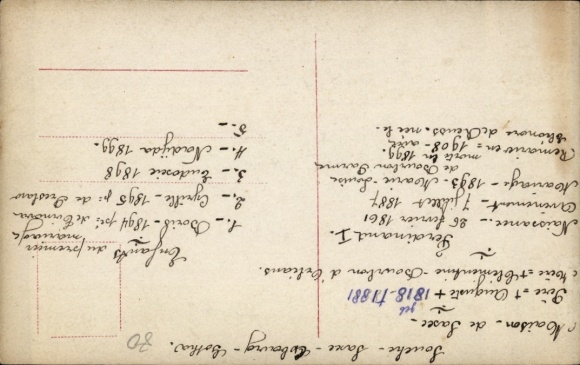 Souche - Saxe - Cobourg - Gotha.
Maison - de Saxe -
geb
Père = + Auguste + 1818 - †1881
Mère = + Clémentine - Bourbon d'Orléans.
Ferdinand I.
Naissance - 26 février 1861
Avènement - 7 juillet 1887
Mariage - 1893 - Marie-Louise
de Bourbon Parme
morte en 1899.
Remarié en = 1908 - avec
Eléonore de Reuss. née le
Enfants du premier
mariage
1. - Boris - 1894 pr. de Tirnovo
2. - Cyrille - 1895 pr. de Preslav
3. - Eudoxie 1898
4. - Nadejda 1899.
5. -
70